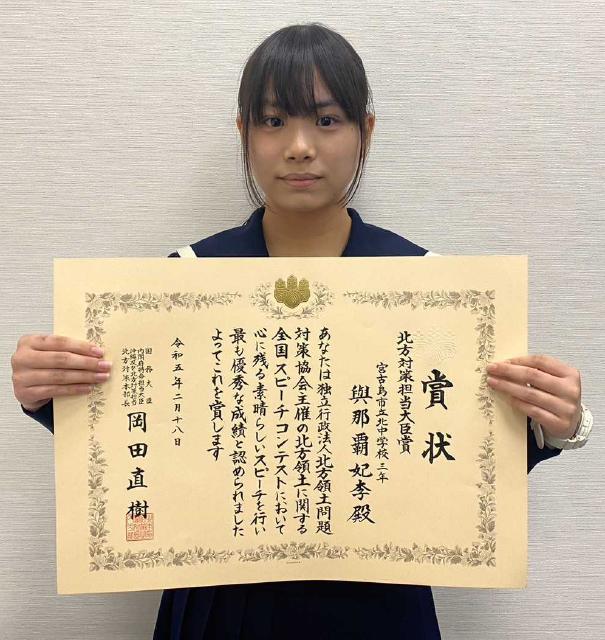 賞状
北方対策担当大臣賞
宮古島市立北中学校三年
與那覇 妃李殿
あなたは独立行政法人北方領土問題
対策協会主催の北方領土に関する
全国スピーチコンテストにおいて
心に残る素晴らしいスピーチを行い
最も優秀な成績と認められました
よってこれを賞します
令和五年二月十八日
国務大臣
内閣府特命担当大臣
沖縄及び北方対策担当
北方対策本部長
岡田直樹